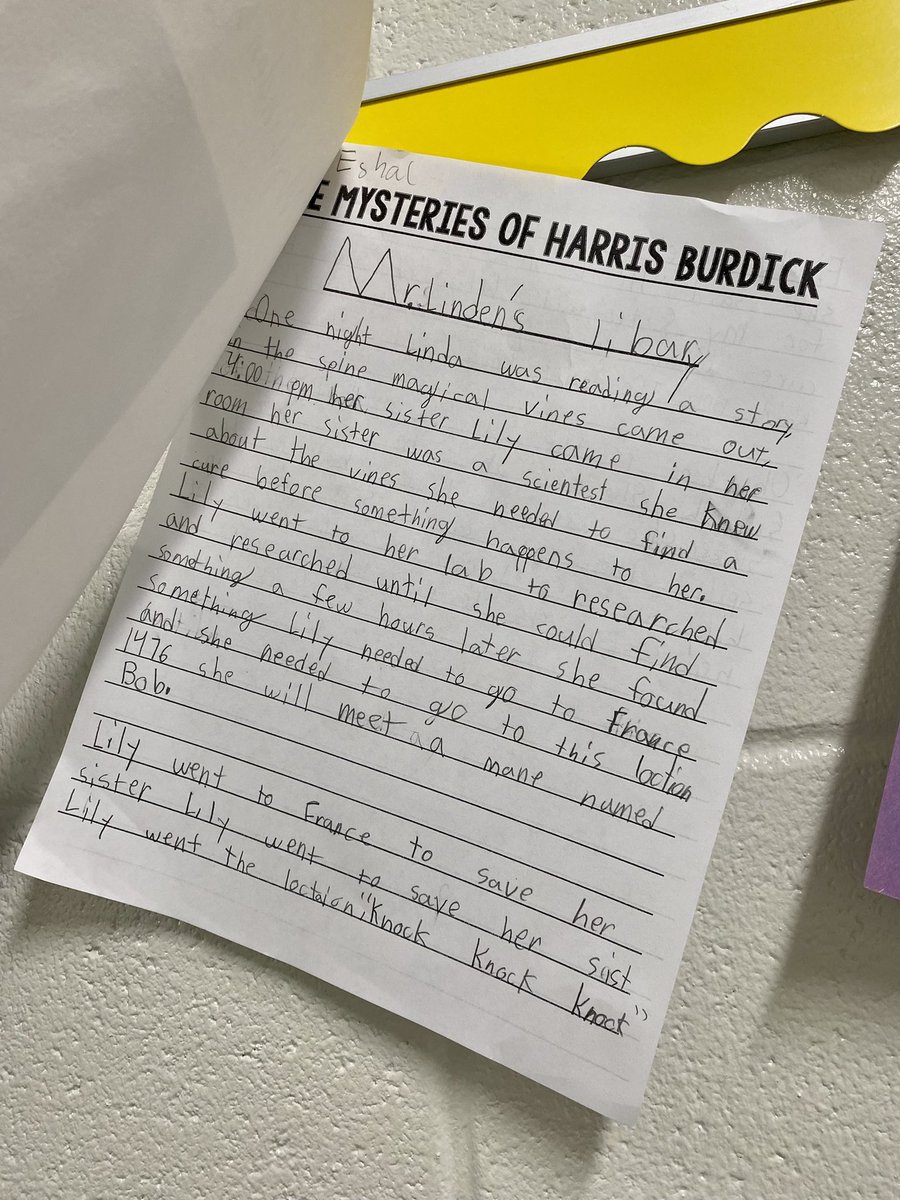 Eshal
E MYSTERIES OF HARRIS BURDICK
Mr.Linden's libary
One night Linda was reading a story,
in the spine magical vines came out,
4:00 pm her sister Lily came in her
room her sister was a scientest she knew
about the vines she needed to find a
cure before something happens to her.
Lily went to her lab to researched
and researched until she could find
something a few hours later she found
something Lily needed to go to France
and she needed to go to this loction
1976 she will meet a a mane named
Bob.
Lily went to France to save her
sister Lily went to save her siist
Lily went the loctaion,"Knock Knock Knock"